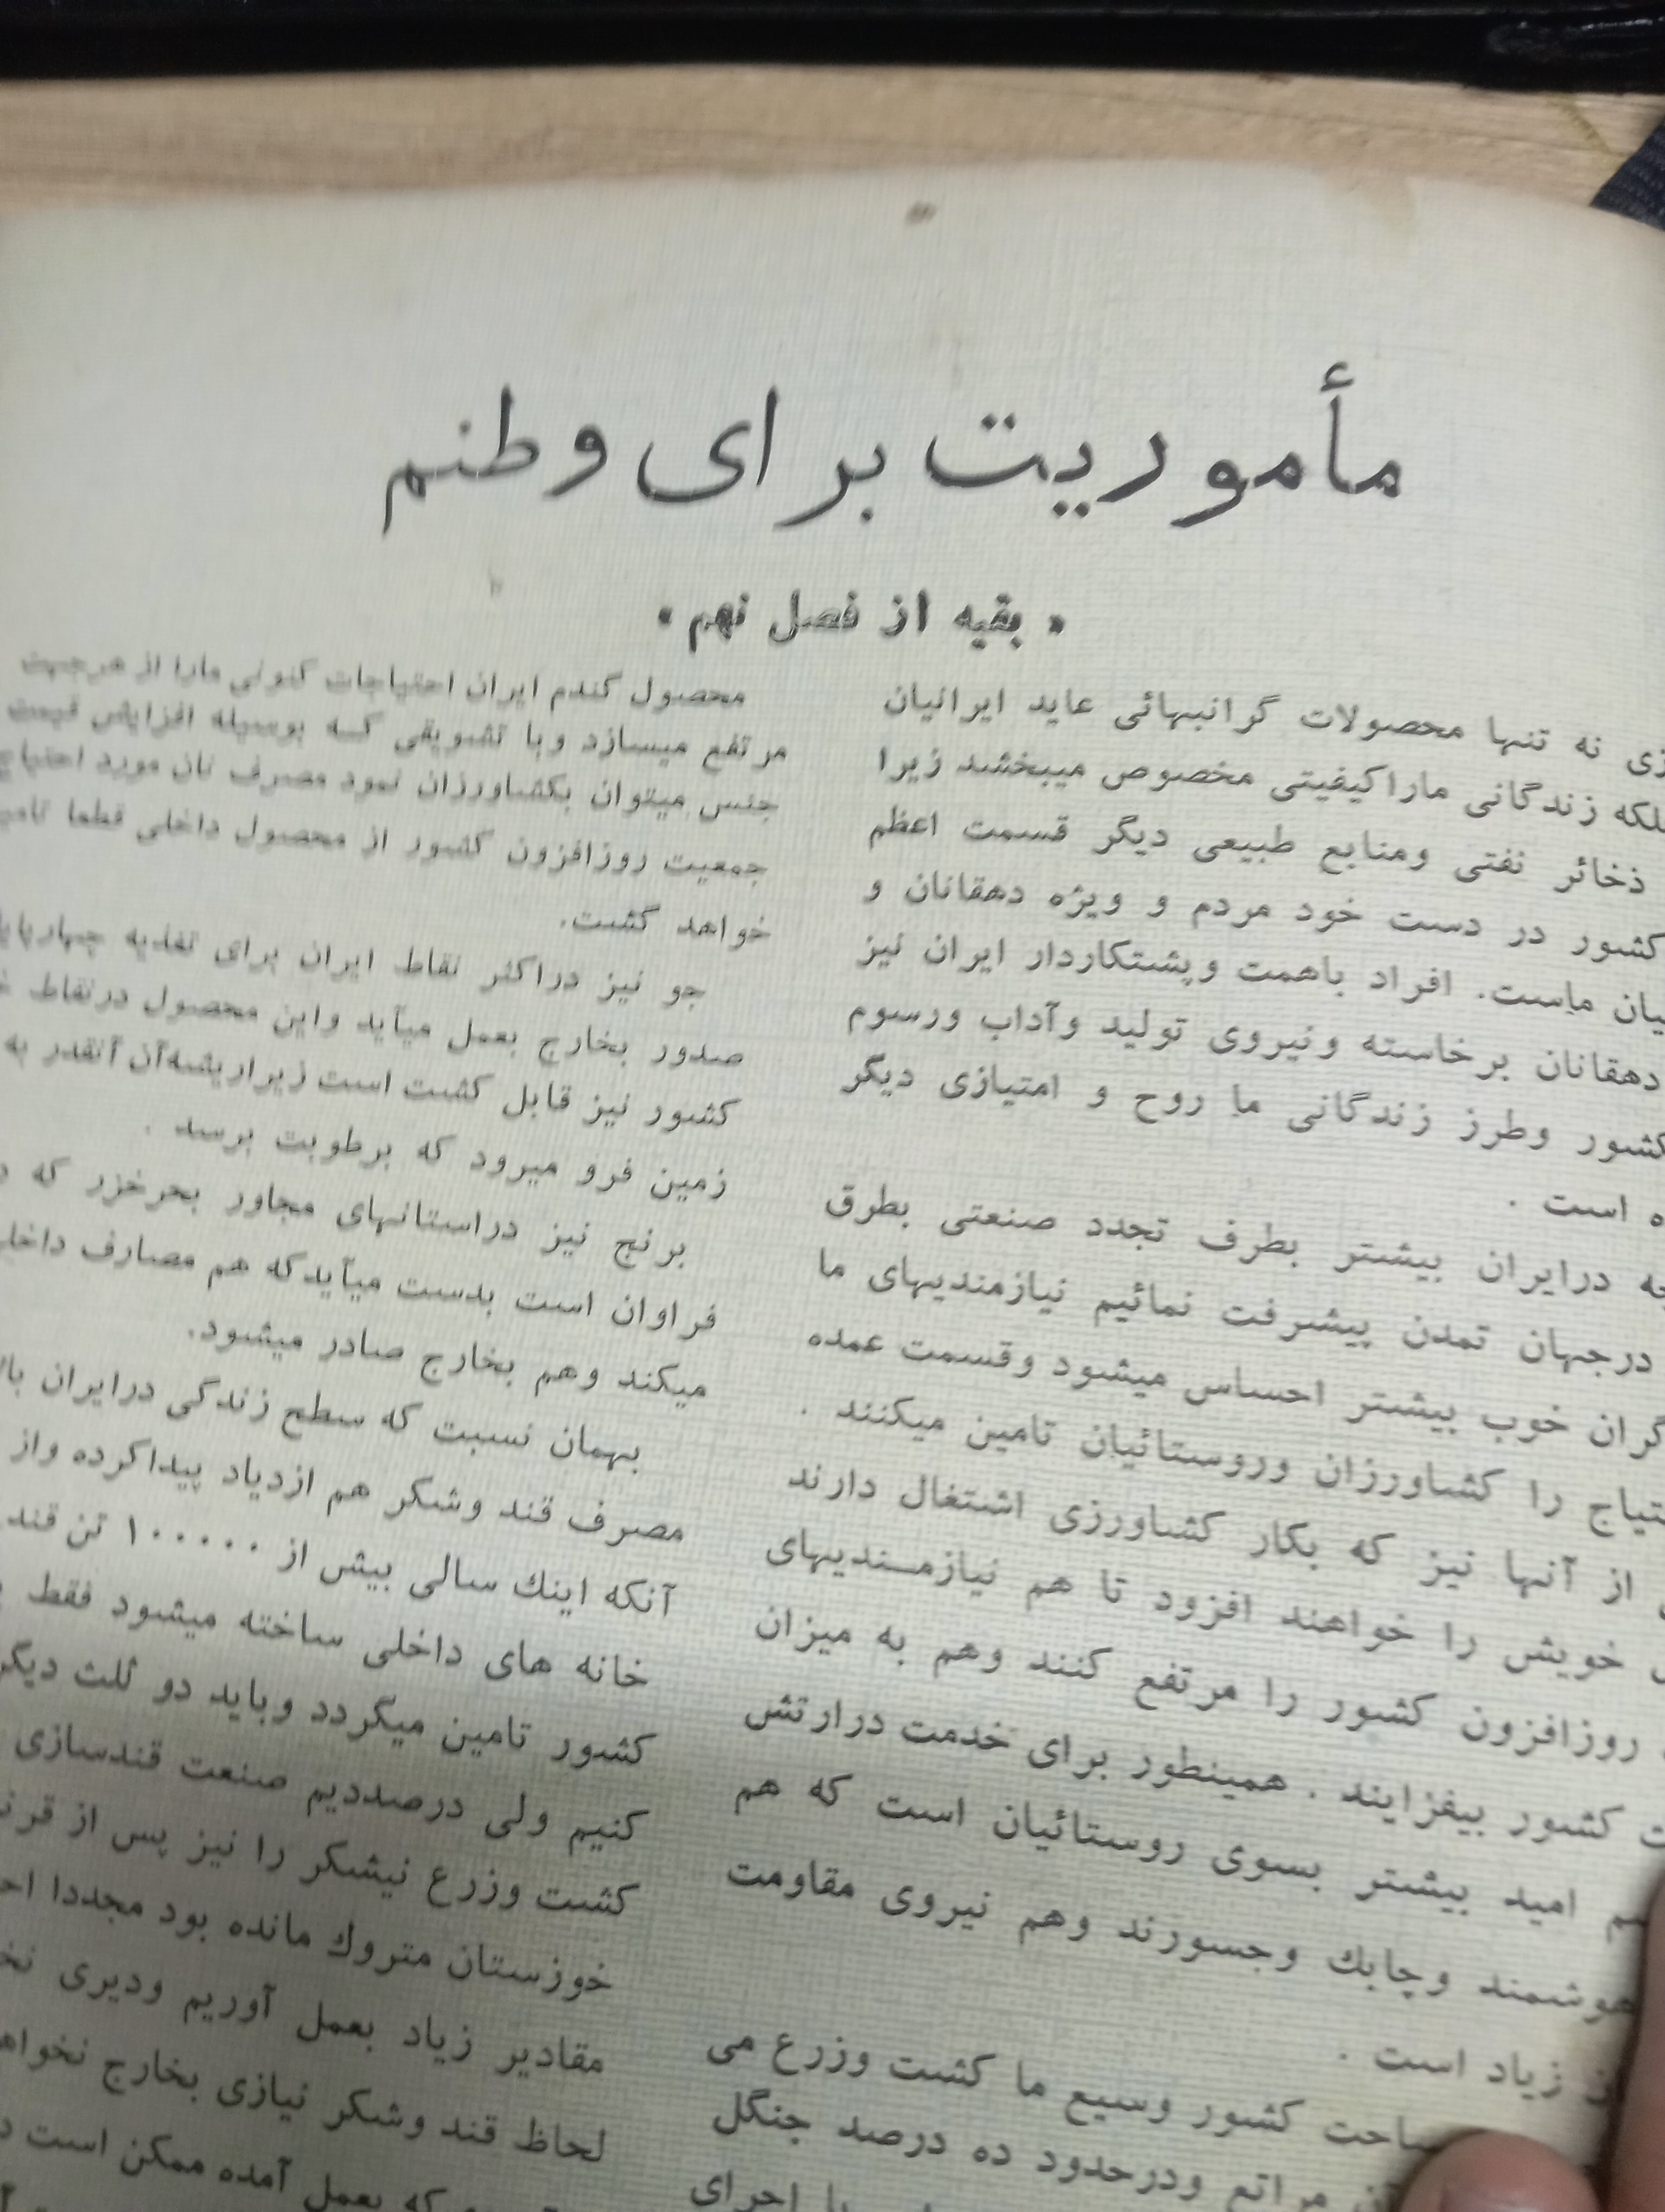 مأموریت برای وطنم
« بقیه از فصل نهم »
نه تنها محصولات گرانبهائی عاید ایرانیان
زندگانی ماراکیفیتی مخصوص میبخشد زیرا
ذخائر نفتی ومنابع طبیعی دیگر قسمت اعظم
کشور در دست خود مردم و ویژه دهقانان و
ماست. افراد باهمت وپشتکاردار ایران نیز
دهقانان برخاسته ونیروی تولید وآداب ورسوم
کشور وطرز زندگانی ما روح و امتیازی دیگر
است .
درایران بیشتر بطرف تجدد صنعتی بطرق
درجهان تمدن پیشرفت نمائیم نیازمندیهای ما
خوب بیشتر احساس میشود وقسمت عمده
را کشاورزان وروستائیان تامین میکنند .
از آنها نیز که بکار کشاورزی اشتغال دارند
خویش را خواهند افزود تا هم نیازمندیهای
روزافزون کشور را مرتفع کنند وهم به میزان
کشور بیفزایند . همینطور برای خدمت درارتش
امید بیشتر بسوی روستائیان است که هم
هوشمند وچابك وجسورند وهم نیروی مقاومت
زیاد است .
کشور وسیع ما کشت وزرع می
مراتع ودرحدود ده درصد جنگل
با اجرای
محصول گندم ایران احتیاجات کنونی مارا از هرجهت
مرتفع میسازد وبا تشویقی که بوسیله افزایش قیمت
جنس میتوان بکشاورزان نمود مصرف نان مورد احتیاج
جمعیت روزافزون کشور از محصول داخلی قطعا
خواهد گشت.
جو نیز دراکثر نقاط ایران برای تغذیه
صدور بخارج بعمل میآید واین محصول درنقاط
کشور نیز قابل کشت است زیراریشهآن آنقدر به
زمین فرو میرود که برطوبت برسد .
برنج نیز دراستانهای مجاور بحرخزر که
فراوان است بدست میآیدکه هم مصارف
میکند وهم بخارج صادر میشود.
بهمان نسبت که سطح زندگی درایران
مصرف قند وشکر هم ازدیاد پیداکرده واز
آنکه اینك سالی بیش از ۱۰۰۰۰۰ تن قند
خانه های داخلی ساخته میشود فقط
کشور تامین میگردد وباید دو ثلث
کنیم ولی درصددیم صنعت قندسازی
کشت وزرع نیشکر را نیز پس از
خوزستان متروك مانده بود مجددا
مقادیر زیاد بعمل آوریم ودیری
لحاظ قند وشکر نیازی بخارج
که بعمل آمده ممکن است